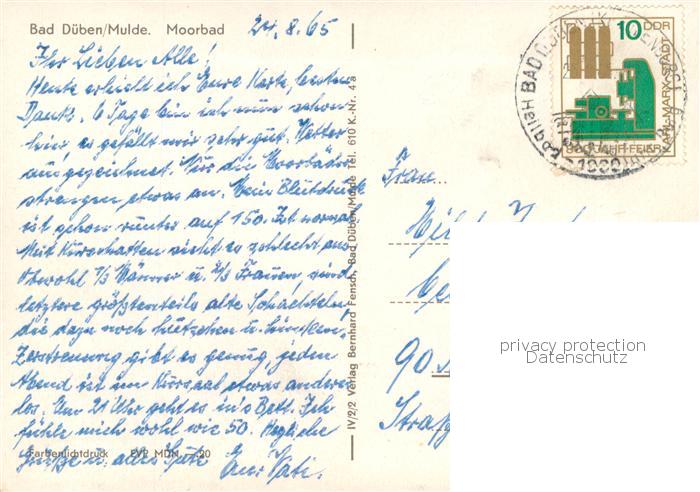 Bad Düben/Mulde. Moorbad
24.8.65
Ihr Lieben Alle!
Heute erhielt ich Eure Karte, besten
Dank. 6 Tage bin ich nun schon
hier, es gefällt mir sehr gut. Wetter
ausgezeichnet. Nur die Moorbäder
strengen etwas an. Mein Blutdruck
ist schon runter auf 150. Ist normal
Mit Kurschatten sieht es schlecht aus
obwohl 1/3 Männer u. 2/3 Frauen, sind
letztere größtenteils alte Schachteln,
die dazu noch
Zerstreuung gibt es genug, jeden
Abend ist im Kursaal etwas anderes
los. Um 21 Uhr geht es in's Bett. Ich
fühle mich wohl wie 50. Herzliche
Grüße u. alles Gute Euer Vati.
Farbenlichtdruck EVP MDN —.20
IV/2/2 Verlag Bernhard Fensch, Bad Düben/Mulde Tel. 610 K.-Nr. 4 a
10 DDR
KARL-MARX-STADT
800 JAHR-FEIER
BAD DÜBEN
Frau
90
Straß
privacy protection
Datenschutz